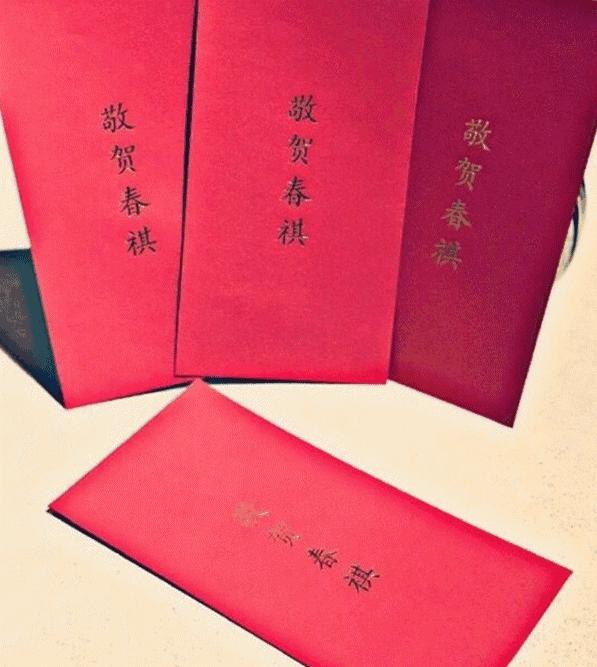 敬贺春祺
敬贺春祺
敬贺春祺
敬贺春祺